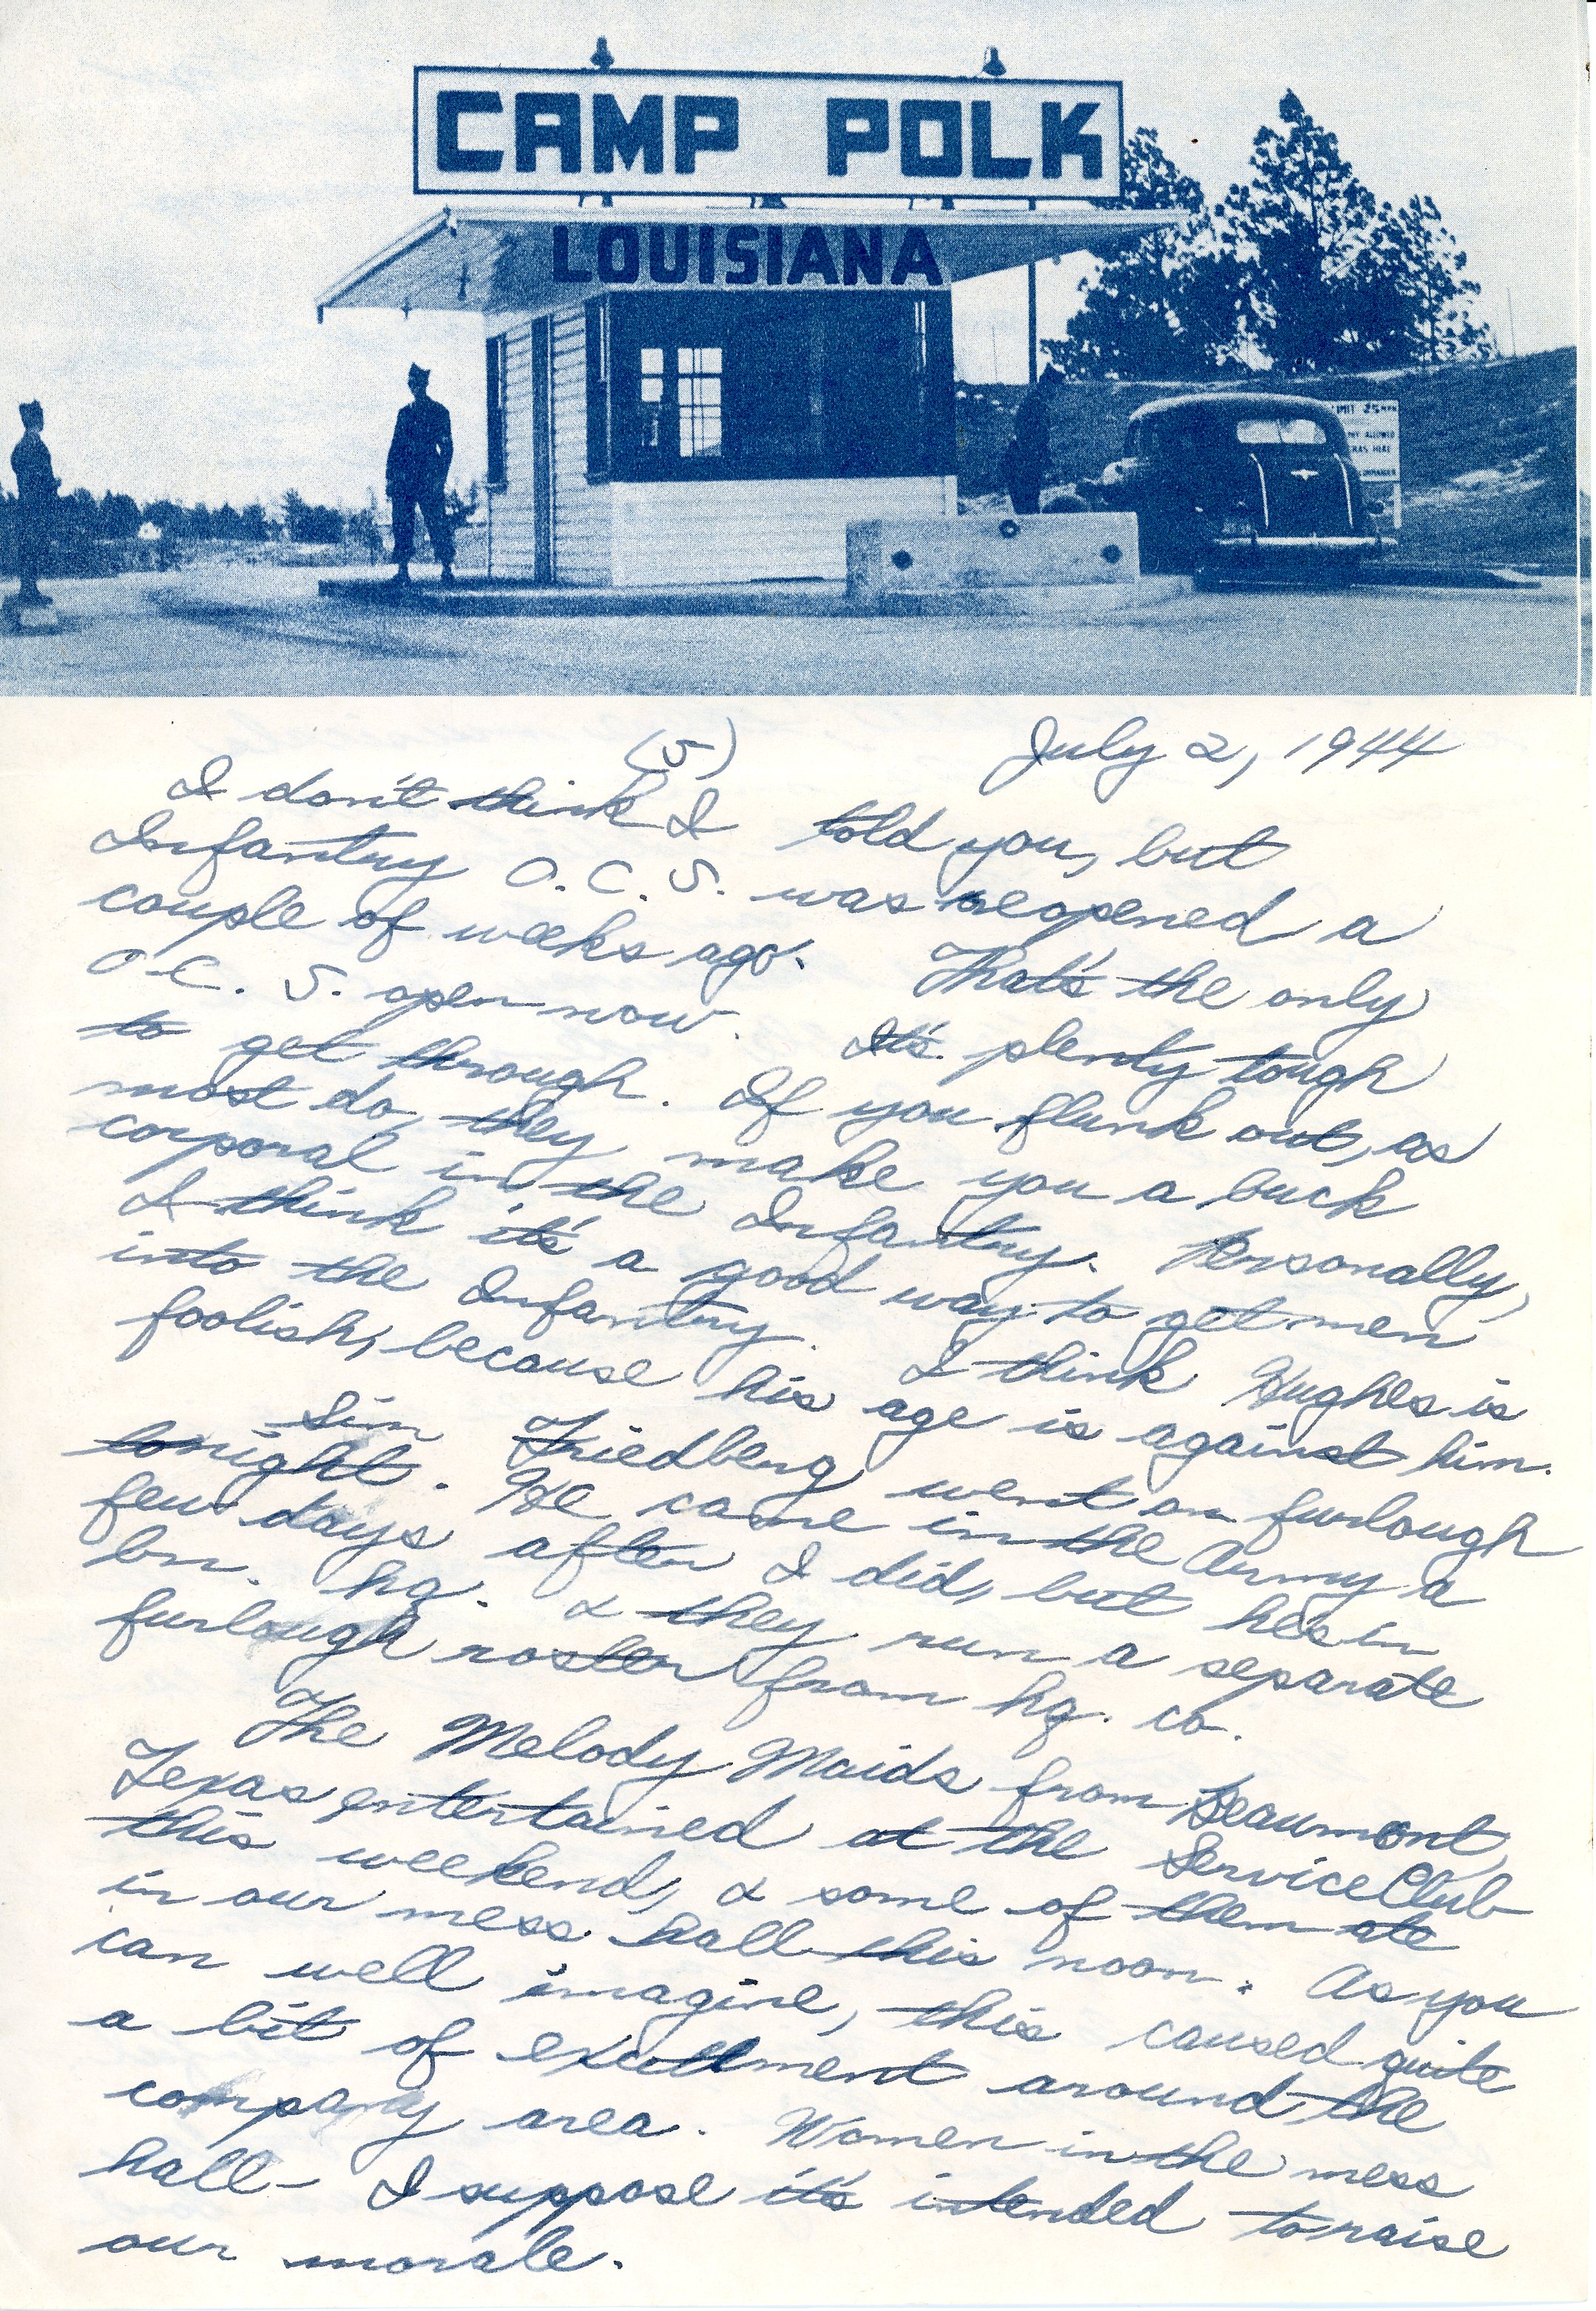 CAMP POLK
LOUISIANA
IMIT 25 MPH
ALLOWED
(5)
July 2, 1944
I don't think I told you, but
Infantry O.C.S. was reopened a
couple of weeks ago. That's the only
O.C.S. open now. It's plenty tough
to get through. If you flunk out, as
most do, they make you a buck
corporal in the Infantry. Personally,
I think it's a good way to get men
into the Infantry. I think Hughes is
foolish, because his age is against him.
Sim Friedberg went on furlough
tonight. He came in the Army a
few days after I did, but he's in
bn. hq. & they run a separate
furlough roster from hq. co.
The Melody Maids from Beaumont,
Texas entertained at the Service Club
this weekend, & some of them ate
in our mess hall this noon. As you
can well imagine, this caused quite
a bit of excitement around the
company area. Women in the mess
hall - I suppose it's intended to raise
our morale.